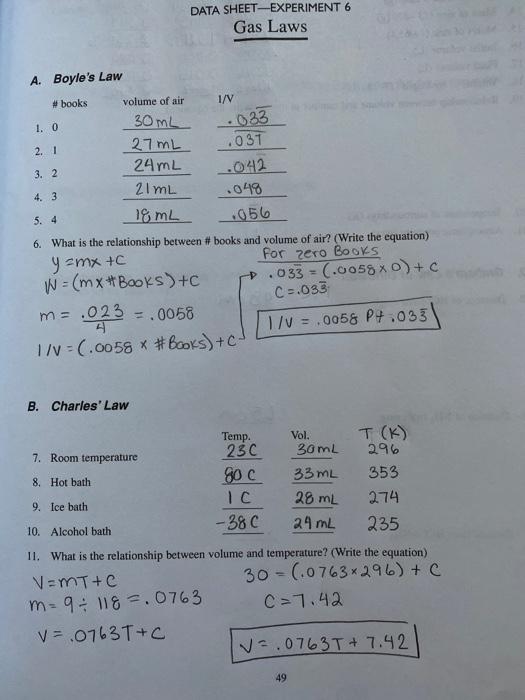 DATA SHEET—EXPERIMENT 6
Gas Laws
A. Boyle's Law
# books volume of air 1/V
1. 0 30mL .03̅3̅
2. 1 27mL .0̅3̅7̅
3. 2 24mL .042
4. 3 21mL .048
5. 4 18mL .056
6. What is the relationship between # books and volume of air? (Write the equation)
y=mx+C For zero Books
W=(mx#Books)+C .03̅3̅=(.0058x0)+C
C=.033̅
m= .023/4 =.0058
1/V = .0058 P+.033̅
1/V=(.0058 x #Books)+C
B. Charles' Law
Temp. Vol. T (K)
7. Room temperature 23C 30mL 296
8. Hot bath 80C 33mL 353
9. Ice bath 1C 28mL 274
10. Alcohol bath -38C 24mL 235
11. What is the relationship between volume and temperature? (Write the equation)
V=mT+C 30=(.0763x296)+C
m=9÷118=.0763 C=7.42
V=.0763T+C
V=.0763T+7.42
49